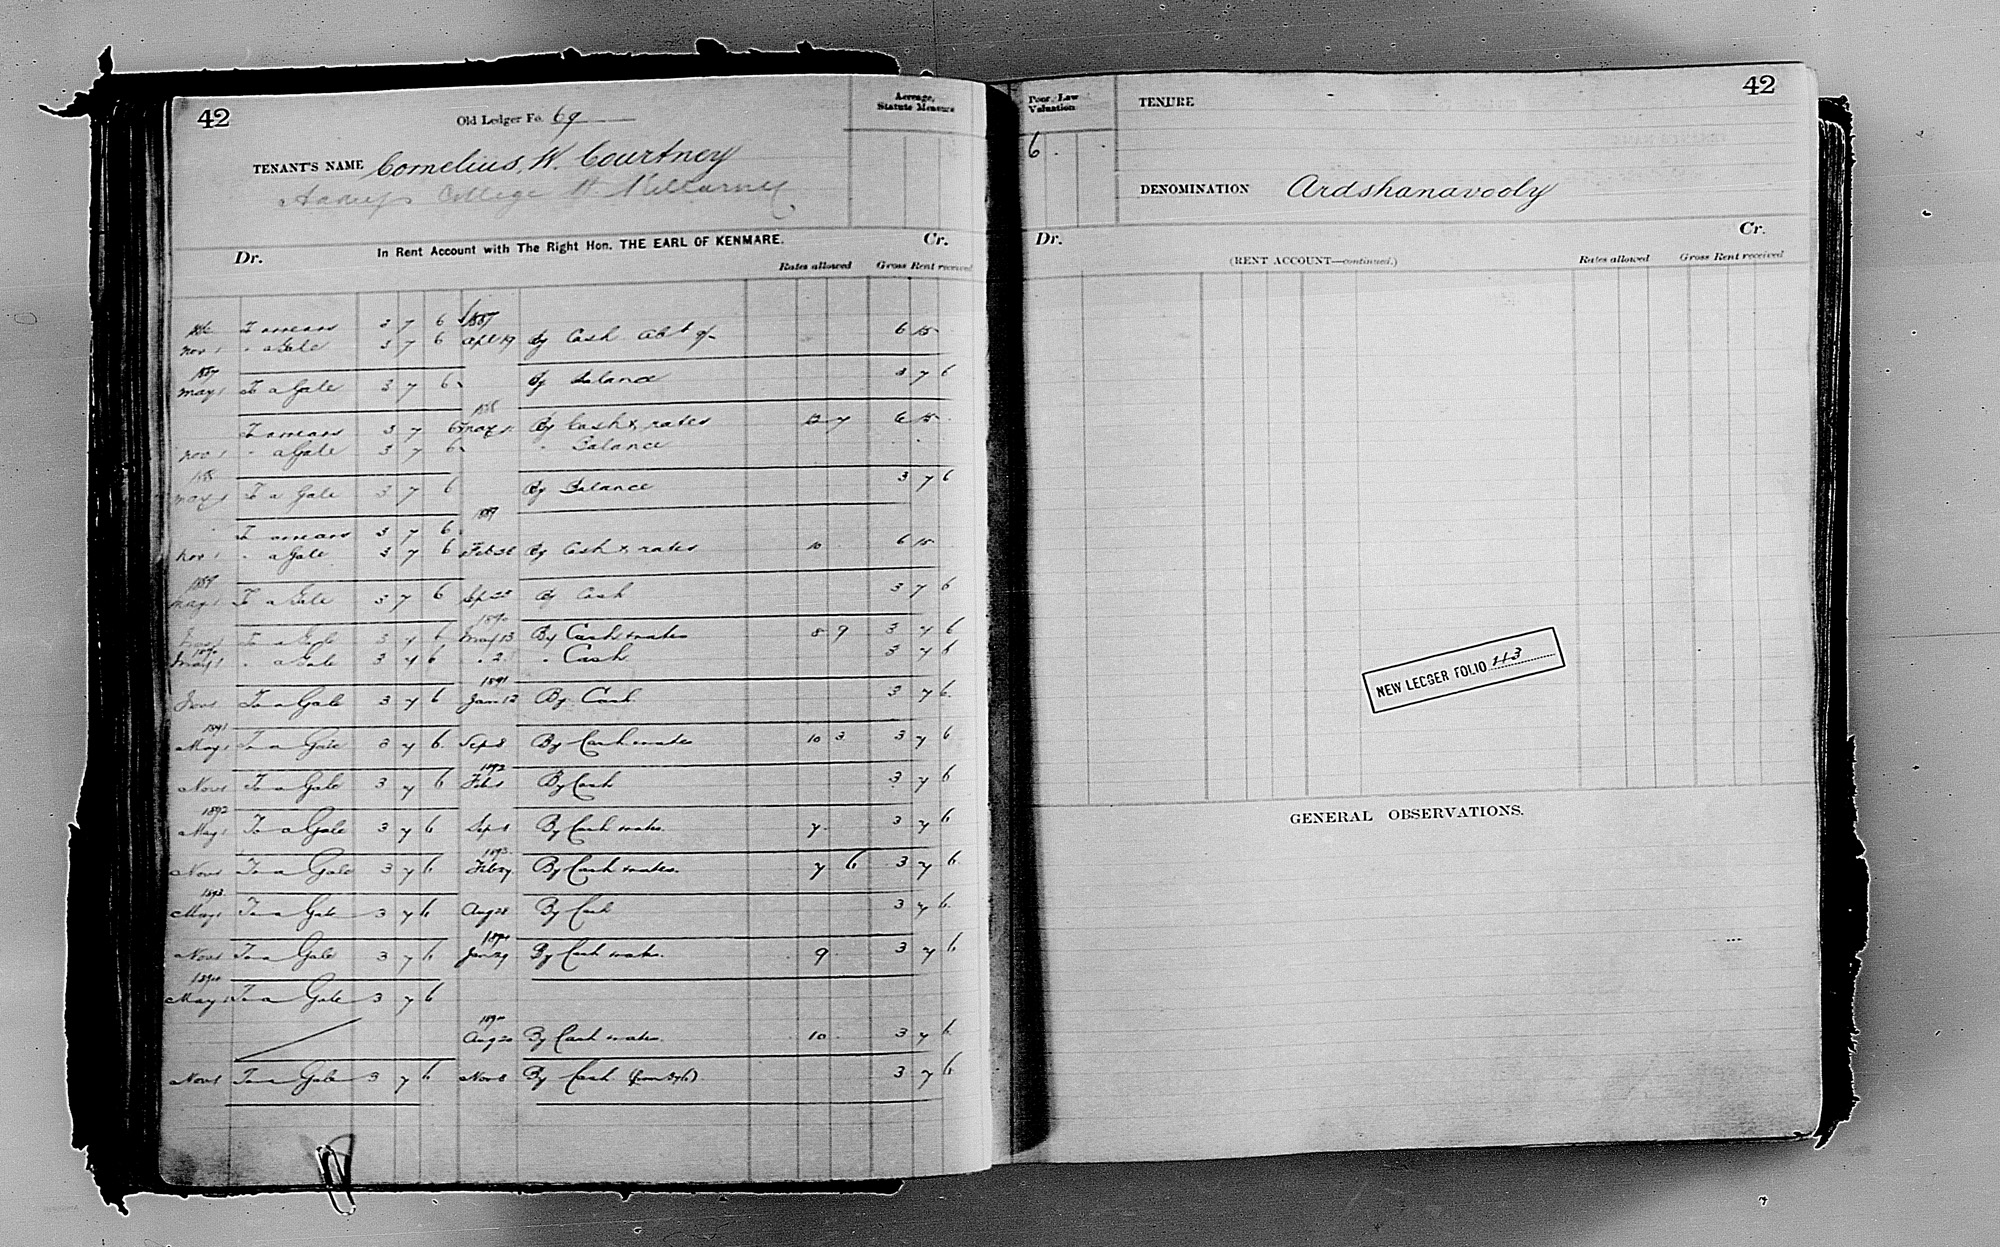 42
Old Ledger Fo. 69
Acreage, Statute Measure
TENANT'S NAME Cornelius. W. Courtney
Address College St Killarney
In Rent Account with The Right Hon. THE EARL OF KENMARE.
Dr. Cr.
Rates allowed Gross Rent received
To arrears 3 7 6 1887
Nov 1 " a Gale 3 7 6 Apl 19 By Cash 6 15
1887
May 1 To a Gale 3 7 6 By Balance 3 7 6
1888
To arrears 3 7 6 May By Cash & rates 12 7 6 15
Nov 1 " a Gale 3 7 6 " Balance
1888
May 1 To a Gale 3 7 6 By Balance 3 7 6
1889
To arrears 3 7 6
Nov 1 " a Gale 3 7 6 Feb By Cash & rates 10 6 15
1889
May 1 To a Gale 3 7 6 Sep 25 By Cash 3 7 6
1890
To a Gale 3 7 6 May 13 By Cash & rates 8 9 3 7 6
1890
May 1 " a Gale 3 7 6 " 2 " Cash 3 7 6
1891
Nov 1 To a Gale 3 7 6 Jan 12 By Cash 3 7 6
1891
May 1 To a Gale 3 7 6 Sep 8 By Cash & rates 10 3 3 7 6
1892
Nov 1 To a Gale 3 7 6 Feb 1 By Cash 3 7 6
1892
May 1 To a Gale 3 7 6 Sep 8 By Cash & rates. 7 3 7 6
1893
Nov 1 To a Gale 3 7 6 Feb 27 By Cash & rates. 7 6 3 7 6
1893
May 1 To a Gale 3 7 6 Aug 28 By Cash 3 7 6
1894
Nov 1 To a Gale 3 7 6 Jan 29 By Cash & rates. 9 3 7 6
1894
May 1 To a Gale 3 7 6
1894
Aug 20 By Cash & rates. 10 3 7 6
Nov 1 To a Gale 3 7 6 Nov 8 By Cash 3 7 6
42
Poor Law Valuation
6
TENURE
DENOMINATION Ardshanavooly
Dr. Cr.
(RENT ACCOUNT—continued.) Rates allowed Gross Rent received
NEW LEDGER FOLIO 43
GENERAL OBSERVATIONS.